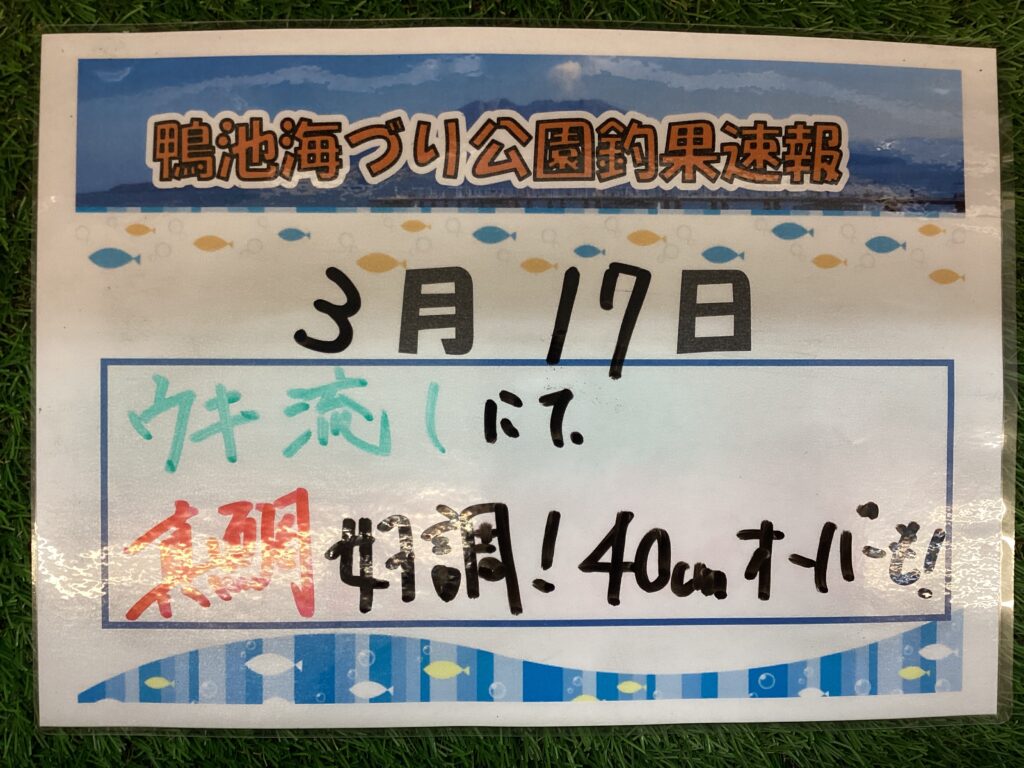 鴨池海づり公園釣果速報
3月17日
ウキ流しにて.
真鯛好調!40cmオーバーも!